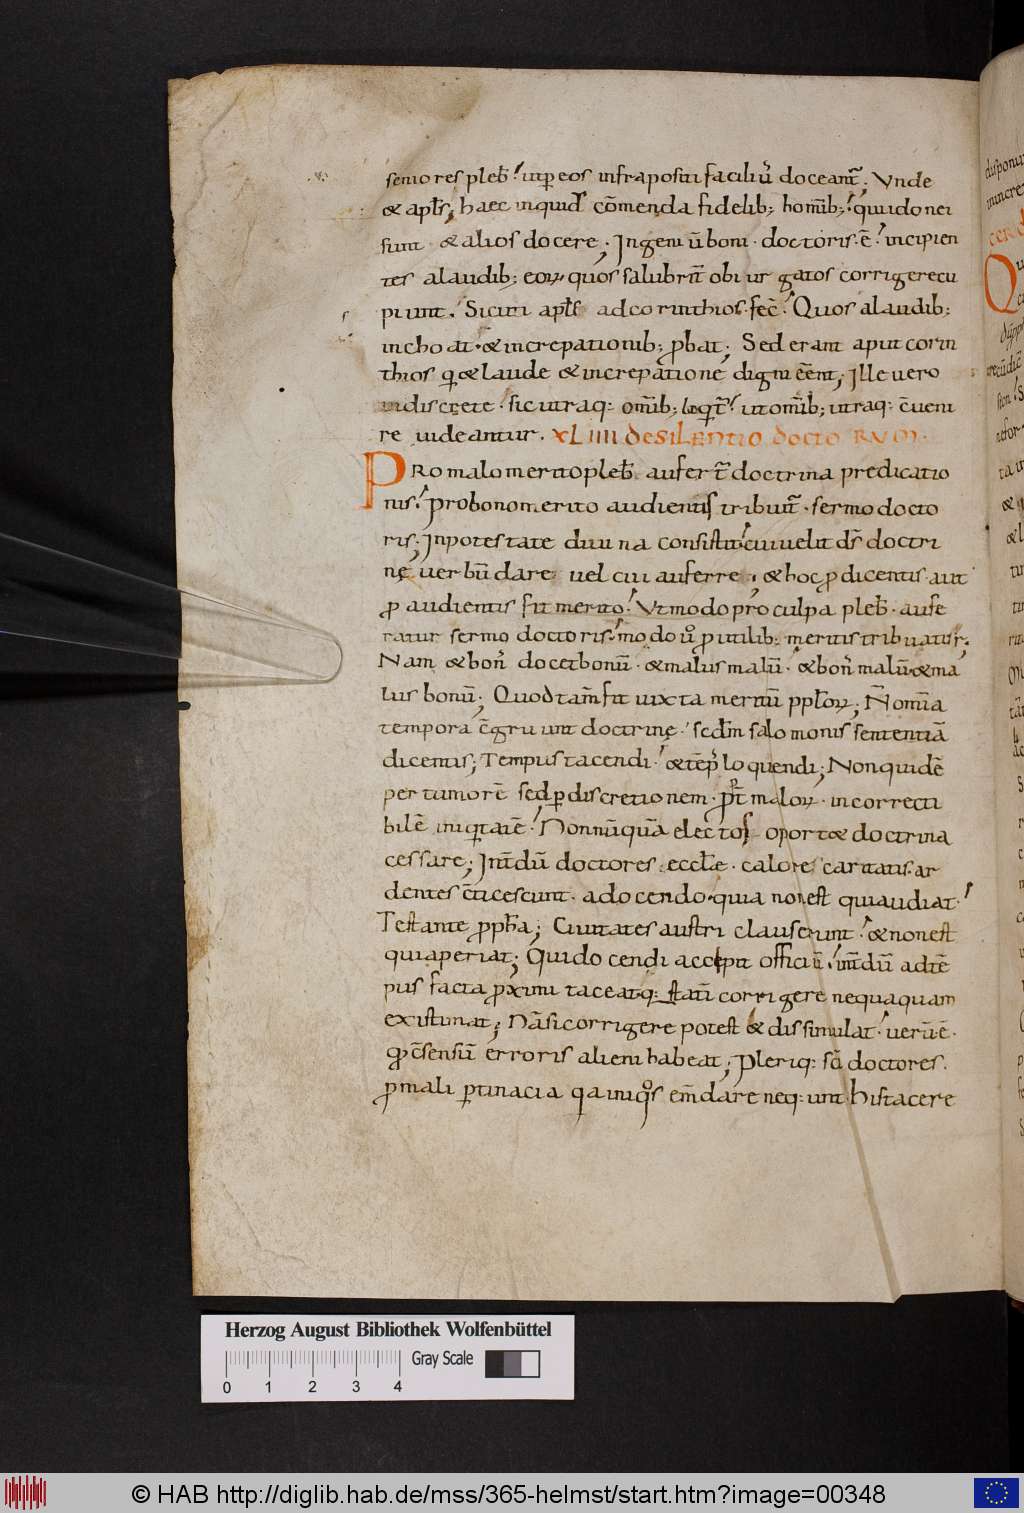 seniores pleb̄. ut p̱ eos infrapositi faciliꝰ doceant̄; Vnde
& apl̄s; haec inquid cōmenda fidelib; homīb; qui idonei
sunt & alios docere; Ingenii ū boni doctoris ē incipien
tes a laudib; eoꝝ quos salubrit̄ obiurgatos corrigere cu
piunt. Sicuti apl̄s ad corinthios fec̄. Quos a laudib;
inchoat & increpationib; ꝓbat; Sed erant aput corin
thios qui & laude & increpatione digni eēnt; Ille uero
indiscrete sic utraq: omīb; ut omīb; utraq: c̄ueni
re uideantur. XLIIII DE SILENTIO DOCTORVM.
PRo malo merito pleb̄ aufert̄ doctrina predicatio
nis. Pro bono merito audientis tribuit̄ sermo docto
ris; In potestate diuina consistit cui uelit d̄s doctri
nę uerbū dare uel cui auferre; & hoc ꝓ dicentis aut
ꝓ audientis fit merito. Vt modo pro culpa pleb̄ aufe
ratur sermo doctoris. modo ū ꝓ utilib; meritis tribuatur;
Nam & bonꝰ docet bonū & malus malū & bonꝰ malū & ma
lus bonū; Quod tam̄ fit iuxta meritū pplōꝝ; N̄ omīa
tempora c̄gruunt doctrinę. sedm salomonis sententiā
dicentis; Tempus tacendi & tēp̱ loquendi; Non quidē
per timorē sed p̱ discretionem ꝓpt̄ maloꝝ incorrecti
bilē iniqtatē. Nonnūquā electos oport& doctrina
cessare; Int̄dū doctores eccl̄æ calore caritatis ar
dentes c̄ticescunt a docendo quia non est qui audiat.
Testante ꝓph̄a; Ciuitates austri clause sunt & non est
qui aperiat; Qui docendi accepit officiū int̄dū ad tē
pus facta ꝓximi taceat q: statī corrigere nequaquam
existimat; Nā si corrigere potest & dissimulat uerū ē
qd c̄sensū erroris alieni habeat; Pleriq: sc̄i doctores
ꝓ mali p̱tinacia qa iniqͦs em̄dare neq:unt. his tacere
Herzog August Bibliothek Wolfenbüttel
Gray Scale
0 1 2 3 4
© HAB http://diglib.hab.de/mss/365-helmst/start.htm?image=00348